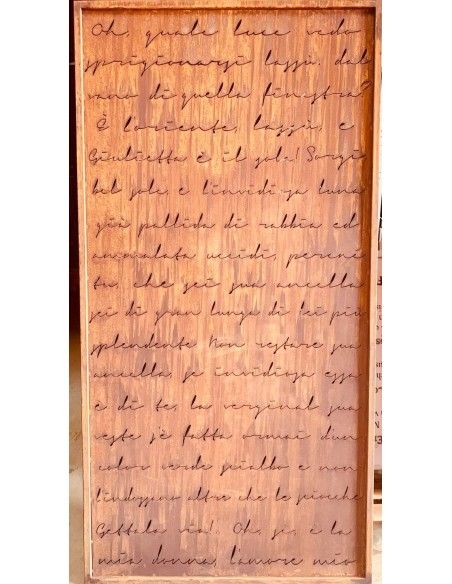 Oh, quale luce vedo
sprigionarsi lassù, dal
vano di quella finestra?
È l'oriente, lassù, e
Giulietta è il sole! Sorgi
bel sole, e l'invidiosa luna
già pallida di rabbia ed
ammalata uccidi, perché
tu, che sei sua ancella
sei di gran lunga di lei più
splendente Non restare sua
ancella, se invidiosa essa
è di te, la verginal sua
veste s'è fatta ormai d'un
color verde scialbo e non
l'indossano altre che le sciocche
Gettala via! Oh, sì, è la
mia donna, l'amore mio